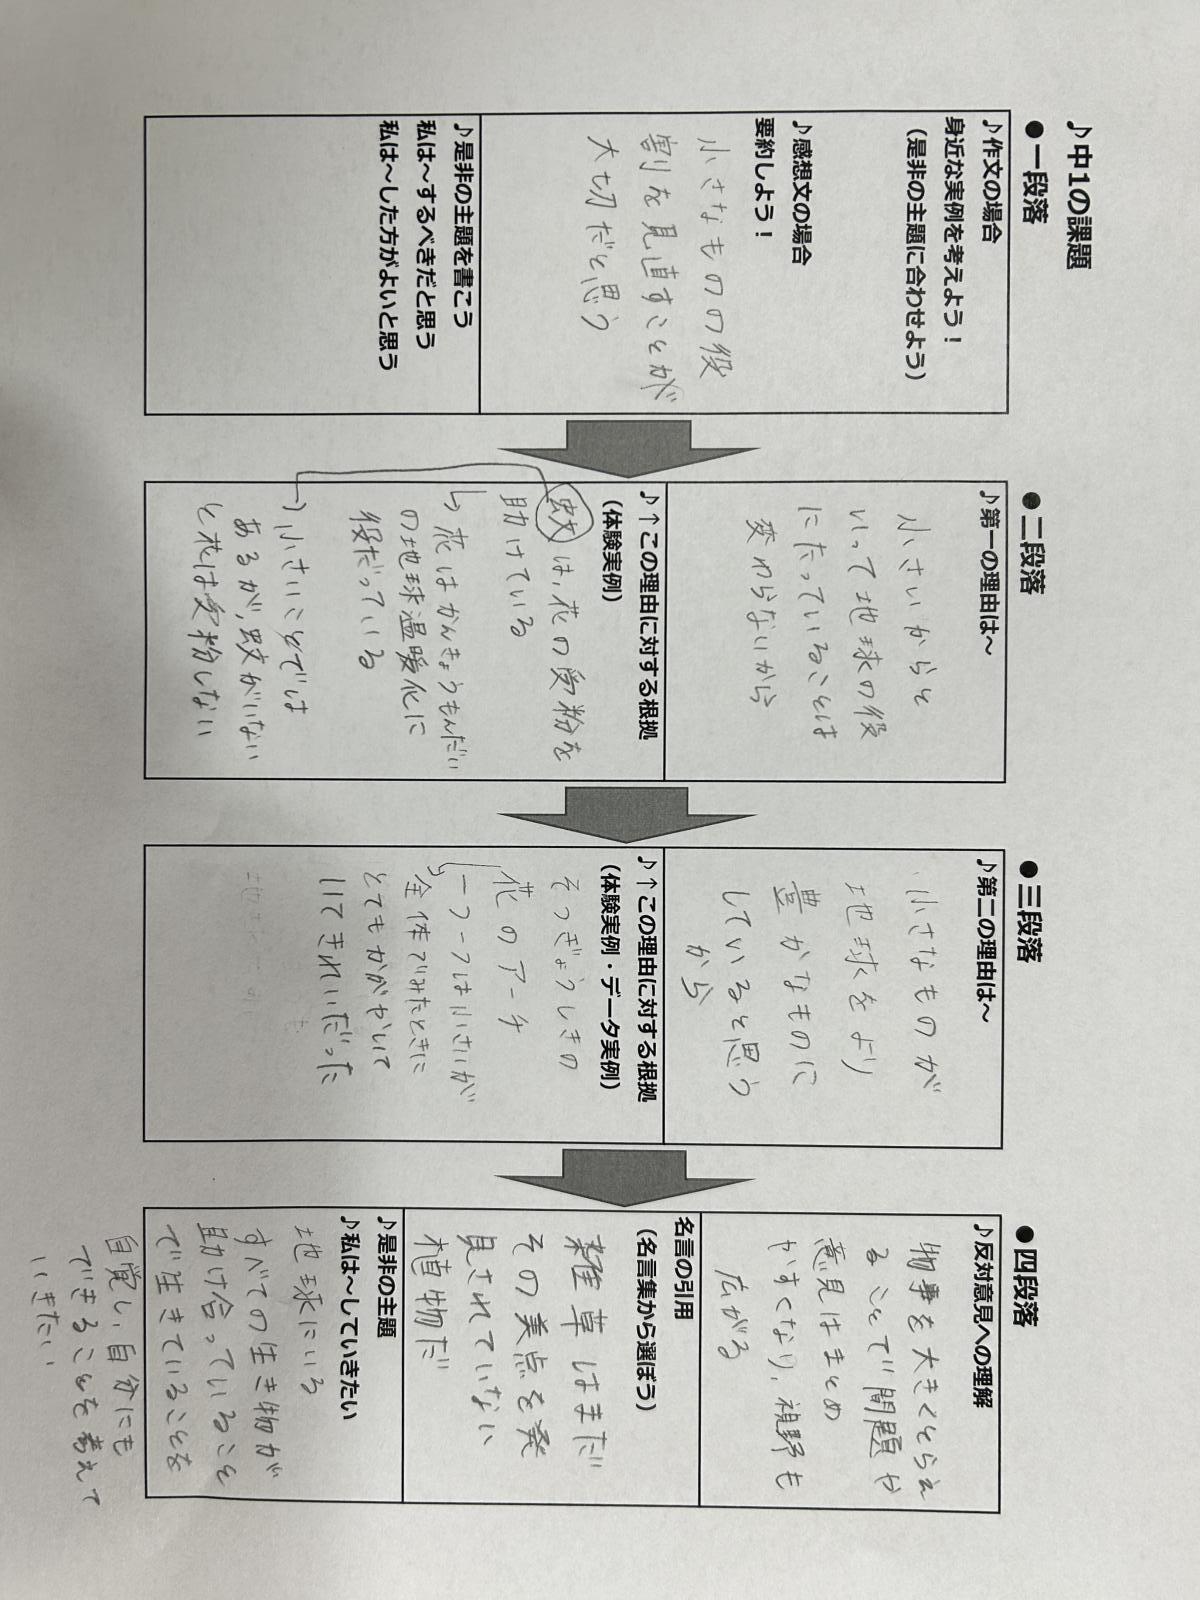 ♪中1の課題
●一段落
♪作文の場合
身近な実例を考えよう!
(是非の主題に合わせよう)
♪感想文の場合
要約しよう!
小さなものの役
割を見直すことが
大切だと思う
♪是非の主題を書こう
私は~するべきだと思う
私は~した方がよいと思う
●二段落
♪第一の理由は~
小さいからと
いって地球の役
にたっていることは
変わらないから
♪↑この理由に対する根拠
(体験実例)
蚊は,花の受粉を
助けている
↳花はかんきょうもんだい
の地球温暖化に
役だっている
小さいことでは
あるが,蚊がいない
と花は受粉しない
●三段落
♪第二の理由は~
小さなものが
地球をより
豊かなものに
していると思う
から
♪↑この理由に対する根拠
(体験実例・データ実例)
そつぎょうしきの
花のアーチ
一つ一つは小さいが
全体でみたときに
とてもかがやいて
いてきれいだった
●四段落
♪反対意見への理解
物事を大きくとらえ
ることで問題や
意見はまとめ
やすくなり,視野も
広がる
名言の引用
(名言集から選ぼう)
雑草はまだ
その美点を発
見されていない
植物だ
♪是非の主題
♪私は~していきたい
地球にいる
すべての生き物が
助け合っていること
で生きていることを
自覚し,自分にも
できることを考えて
いきたい